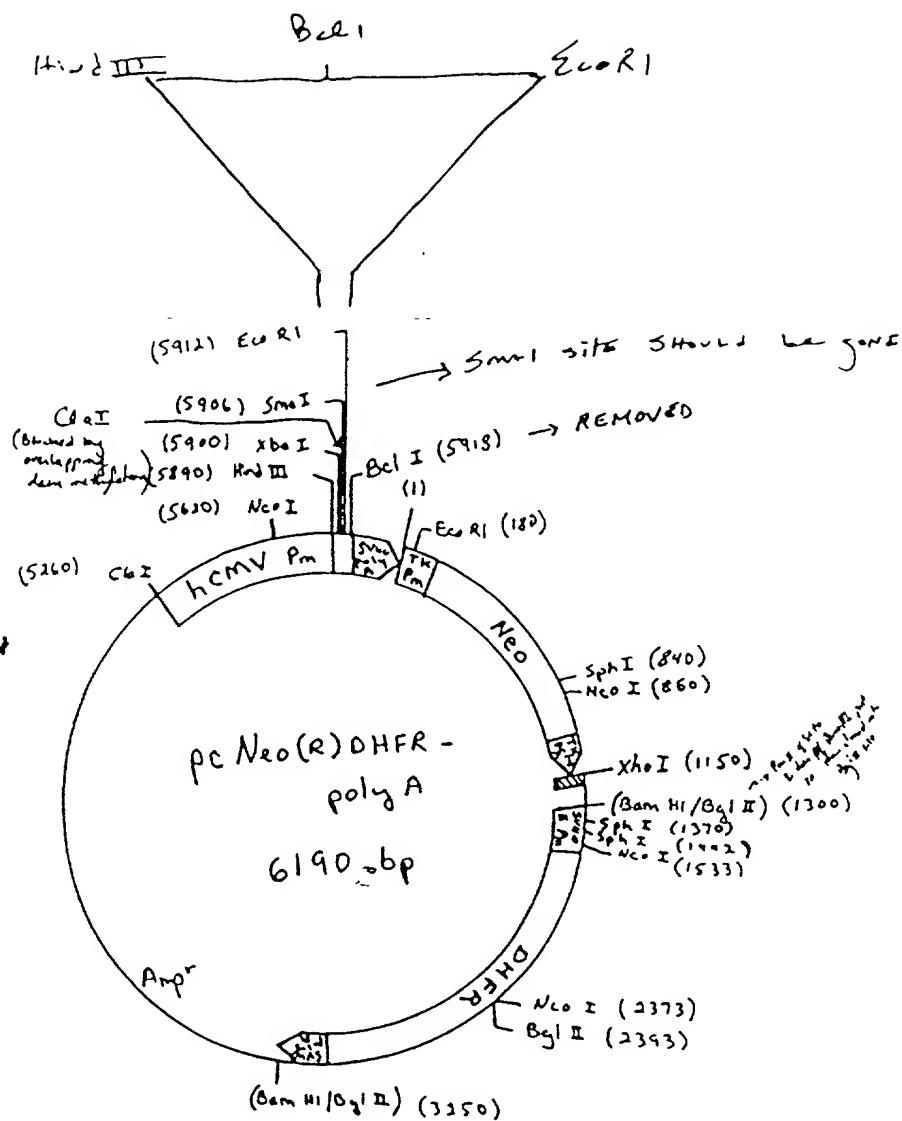 Bcl 1
Hind III
EcoR1
(5912) EcoR1
→ SmaI site should be gone
(5906) SmaI
ClaI
(Blocked by
overlapping
dam methylation)
(5900) XbaI
(5890) Hind III
Bcl I (5918) → REMOVED
(1)
(5620) NcoI
EcoR1 (180)
(5260) ClaI
hCMV Pm
SV40
Poly
A
TK
Pm
Neo
Sph I (840)
Nco I (860)
Xho I (1150)
(Bam HI/Bgl II) (1300)
Sph I (1370)
Sph I (1442)
Nco I (1533)
pc Neo(R)DHFR-
poly A
6190 bp
DHFR
Ampr
Nco I (2373)
Bgl II (2393)
(Bam HI/Bgl II) (3250)